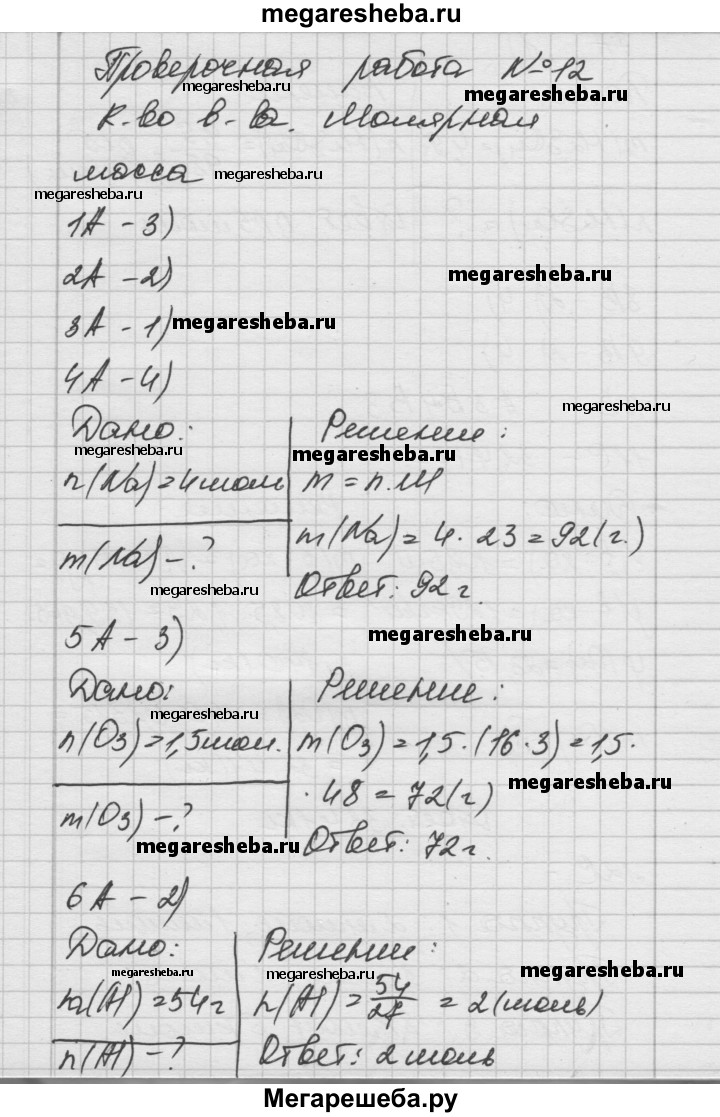 megaresheba.ru
Проверочная работа №12
megaresheba.ru
megaresheba.ru
К-во в-ва. Молярная
масса
megaresheba.ru
megaresheba.ru
1А - 3)
2А - 2)
megaresheba.ru
3А - 1)
megaresheba.ru
4А - 4)
megaresheba.ru
Дано:
Решение:
megaresheba.ru
n(Na)=4моль
m = n.M
m(Na) - ?
m(Na) = 4 · 23 = 92(г.)
megaresheba.ru
Ответ: 92 г.
5А - 3)
megaresheba.ru
Дано:
Решение:
megaresheba.ru
n(O3)=1,5мол.
m(O3) = 1,5 · (16 · 3) = 1,5 ·
· 48 = 72(г)
megaresheba.ru
m(O3) - ?
megaresheba.ru
Ответ: 72 г.
6А - 2)
Дано:
Решение:
megaresheba.ru
megaresheba.ru
m(Al) = 54 г
n(Al) = 54/27 = 2(моль)
n(Al) - ?
Ответ: 2 моль
Мегарешеба.ру